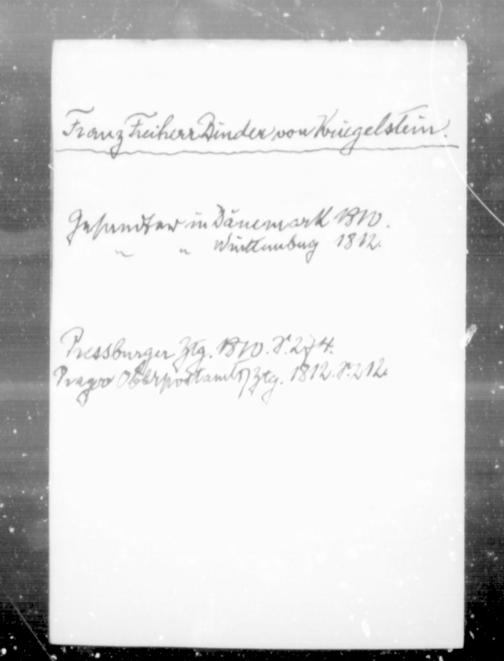 Franz Freiherr Binder von Kriegelstein.
Gesandter in Dänemark 1810.
" " Württemburg 1812.
Pressburger Ztg. 1810. S. 274.
Prager Oberpostamts Ztg. 1812. S. 212.